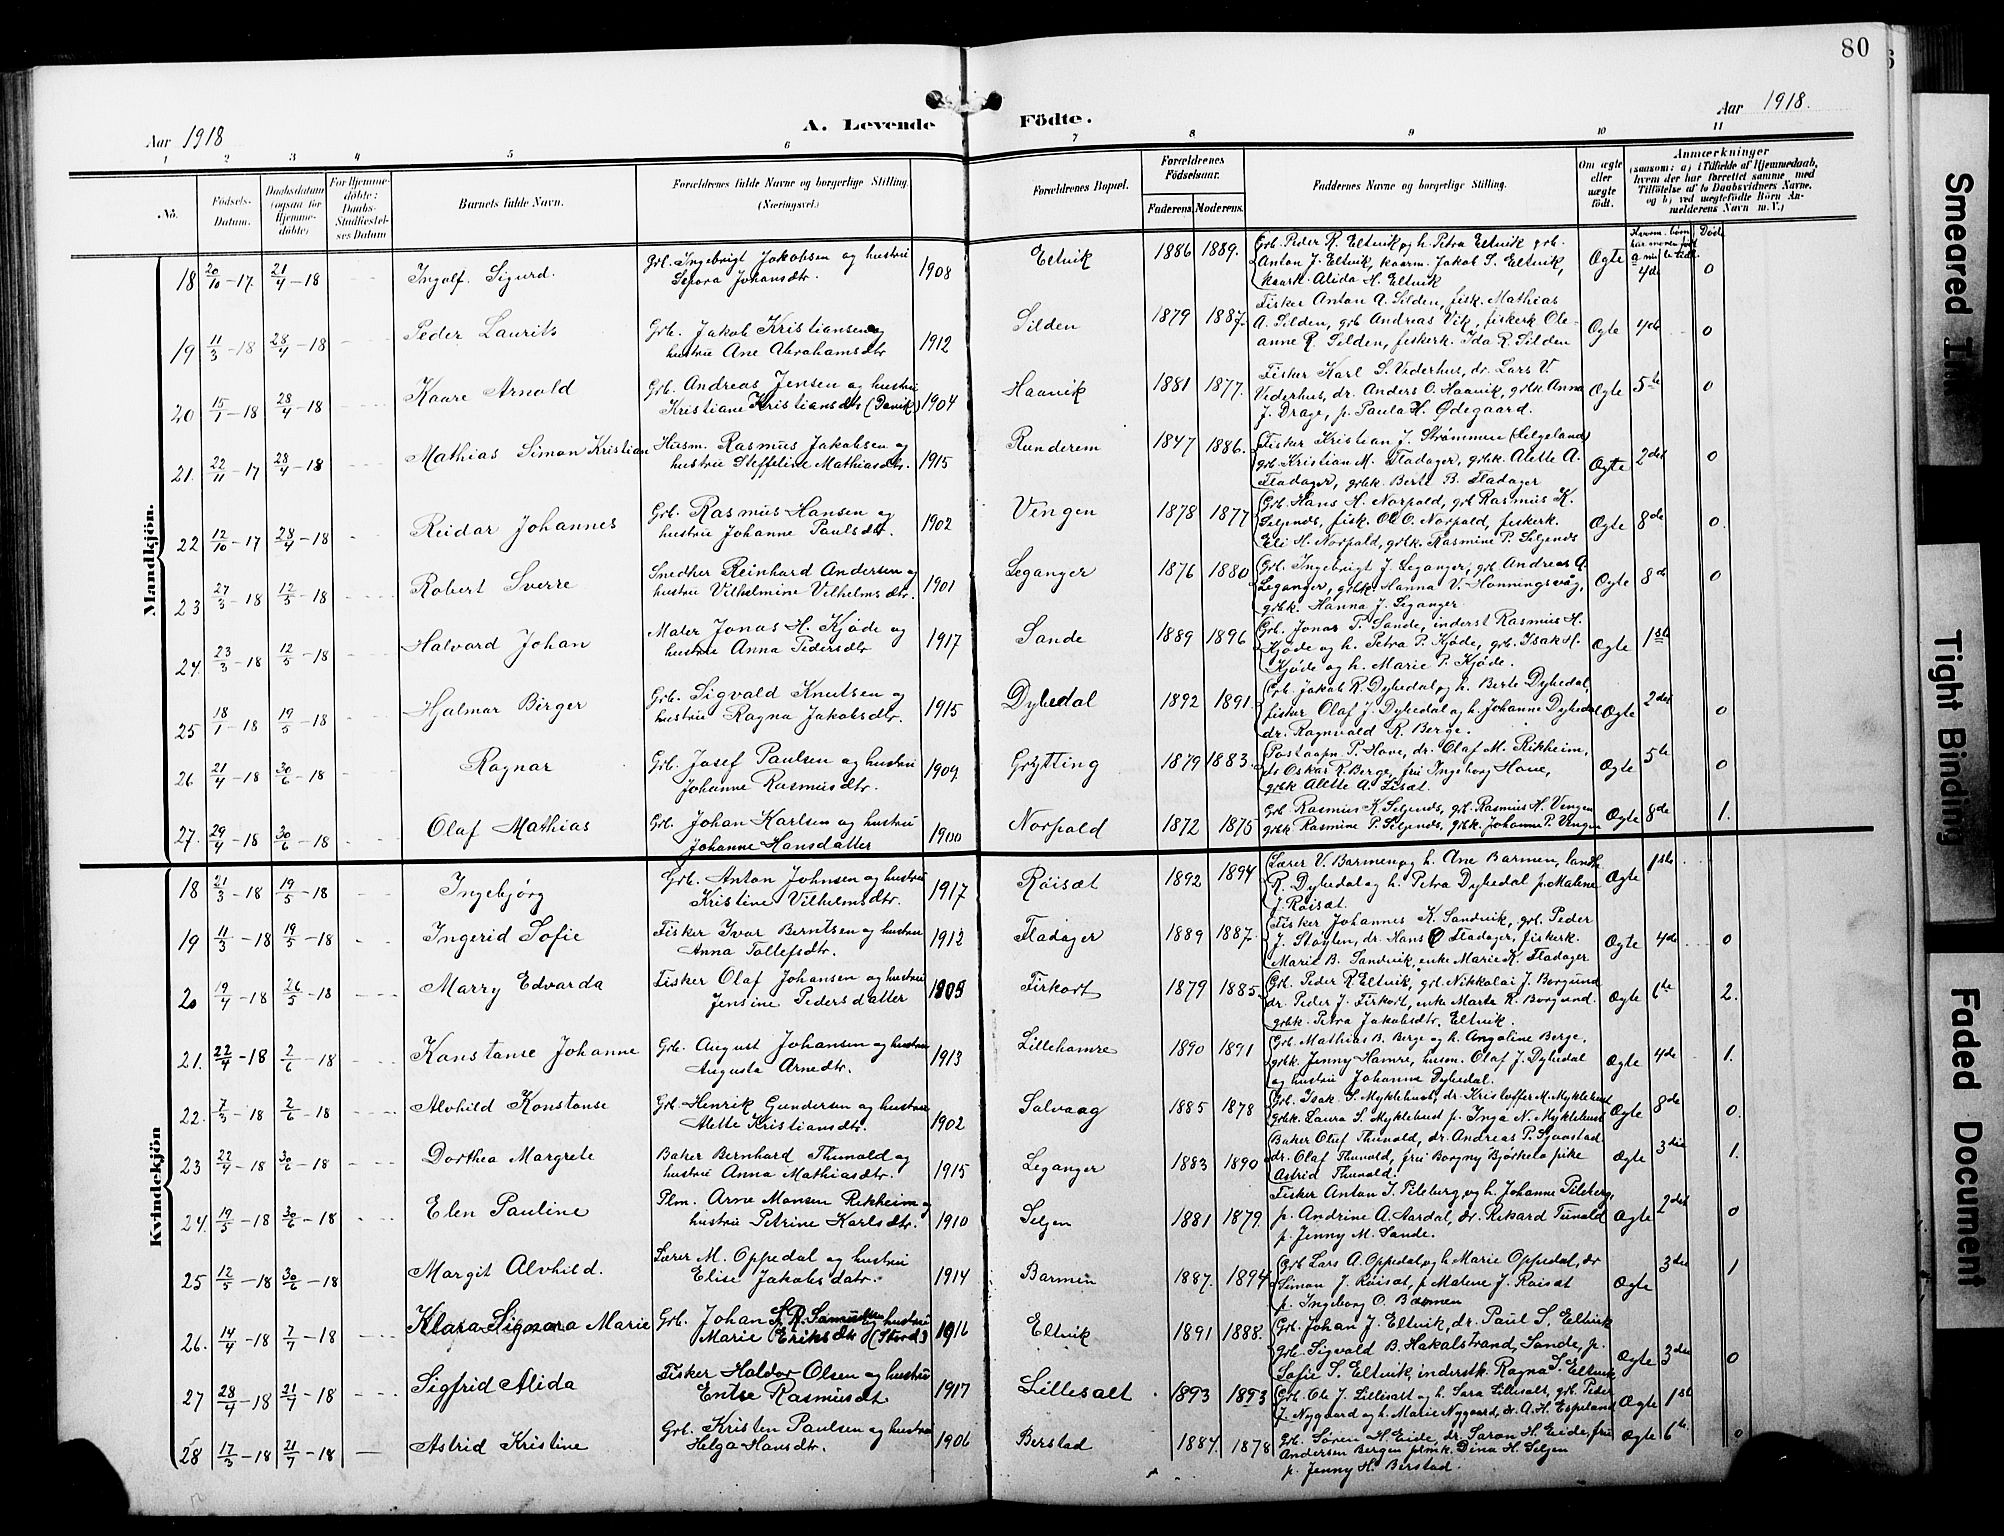 80
Aar 1918
A. Levende
Födte.
Aar 1918.
1 2 3 4 5 6 7 8 9 10 11
No.
Födsels-
Datum.
Daabsdatum
(ogsaa for
Hjemme-
döbte)
For Hjemme-
döbte:
Daabs-
Stadfæstel-
ses Datum
Barnets fulde Navn.
Forældrenes fulde Navne og borgerlige Stilling.
(Næringsvei.)
Forældrenes Bopæl.
Forældrenes
Födselsaar.
Faderens. Moderens.
Faddernes Navne og borgerlige Stilling.
Om ægte
eller
uægte
født.
Anmærkninger
(saasom: a) i Tilfælde af Hjemmedaab,
hvem der har forrettet samme, med
Tilföielse af to Daabsvidners Navne,
og b) ved uægtefödte Börn An-
melderens Navn m. V.)
Mandkjön.
18 20/10-17 21/4-18 Ingolf Sigurd Grb. Ingebrigt Jakobsen og hustru Sepora Johansdtr. 1908 Eltvik 1886 1889. Grb. Peder R. Eltvik og h. Petra Eltvik grb.
Anton J. Eltvik, kaarm. Jakob S. Eltvik,
kaark Alida H. Eltvik Ægte 4de 0
19 11/3-18 28/4-18 Peder Laurits Grb. Jakob Kristiansen og
hustru Ane Abrahamsdtr 1912 Silden 1879 1887. Fisker Anton A. Silden, fisk. Mathias
A. Silden, grb Andreas Vik, fiskerk Ole-
anne R. Silden, fiskerk. Ida R. Silden Ægte 4de 0
20 15/1-18 28/4-18 Kaare Arnold Grb. Andreas Jensen og hustru
Kristiane Kristiansdtr (Davik) 1904 Haavik 1881 1877. Fisker Karl S. Viderhus, dr. Lars V.
Viderhus, dr. Anders O. Haavik, grbk Anna
J. Drage, p. Paula H. Ødegaard. Ægte 5te 0
21. 22/11-17 28/4-18 Mathias Simon Kristian Husm. Rasmus Jakobsen og
hustru Steffeline Mathiasdtr. 1915 Runderem 1847 1886. Fisker Kristian J. Strømmen (Helgeland)
grb Kristian M. Fladager, grbk. Alette A.
Fladager, grbk Berte B. Fladager Ægte 2det 0
22 12/10-17 28/4-18 Reidar Johannes Grb. Rasmus Hansen og
hustru Johanne Paulsdtr. 1902 Vingen 1878 1877 Grb. Hans H. Norpold, grb Rasmus K.
Seljends, fisk. Ole O. Norpold, fiskerk.
Eli H. Norpold, grbk. Rasmine P. Seljends Ægte 8de 0.
23 27/3-18 12/5-18 Robert Sverre Snedker Reinhard Andersen og
hustru Vilhelmine Vilhelmsdtr. 1901 Leganger 1876 1880 Grb. Ingebrigt J. Leganger, grb Andreas A.
Leganger, grbk. Hanna V. Honningsvåg,
grbk. Hanna J. Leganger Ægte 8de 0
24. 23/3-18 12/5-18 Halvard Johan Maler Jonas H. Kjøde og
hustru Anna Pedersdtr 1917 Sande 1889 1896 Grb. Jonas T. Sande, inderst Rasmus H.
Kjøde og h. Petra P. Kjøde, grb. Isak H.
Kjøde og h. Marie P. Kjøde. Ægte 1ste
25 18/1-18 19/5-18 Hjalmar Birger Grb. Sigvald Knutsen og
hustru Ragna Jakobsdtr. 1915 Dybedal 1892 1891 Grb. Jakob R. Dybedal og h. Berte Dybedal,
fisker Olaf J. Dybedal og h. Johanne Dybedal
dr. Ragnvald R. Berge. Ægte 2det 0
26 21/4-18 30/6-18 Ragnar Grb. Josef Paulsen og hustru
Johanne Rasmusdtr. 1909 Grytting 1879 1883. Postaapn P. Hove, dr. Olaf M. Rikheim,
dr Oskar R. Berge, fru Ingeborg Hove,
grbk Alette A. Lisæt. Ægte 5te 0
27. 29/4-18 30/6-18 Olaf Mathias Grb. Johan Karlsen og hustru
Johanne Hansdatter 1900 Norpold 1872 1875 Grb Rasmus K. Seljends, grb. Rasmus H. Vingen
grbk Rasmine P. Seljends, grbk. Johanne P. Vingen Ægte 8de 1.
Kvindekjön
18 21/3-18 19/5-18 Ingebjørg Grb. Anton Johnsen og hustru
Kristine Vilhelmsdtr. 1917 Røisæt 1892 1894 Lærer V. Barmen og h. Ane Barmen, landh.
R. Dybedal og h. Petra Dybedal p. Malene
J. Røisæt. Ægte 1ste
19 11/3-18 19/5-18 Ingerid Sofie Fisker Ivar Berntsen og hustru
Anna Tollefsdtr. 1912 Fladager 1889 1887. Fisker Johannes K. Sandvik, grb. Peder
J. Støylen, dr. Hans O Fladager, fiskerk.
Marie B. Sandvik, enke Marie K. Fladager Ægte 4de 0
20 19/4-18 26/5-18 Marry Edvarda Fisker Olaf Johansen og hustru
Jensine Pedersdatter Firkort 1879 1885. Grb. Peder R. Eltvik, grb. Nikkolai J. Borgund
dr. Peder J. Firkort, enke Marte R. Borgund.
grbk. Petra Jakobsdtr. Eltvik. Ægte 6te 2.
21. 22/4-18 2/6-18 Konstanse Johanne Grb. August Johansen og hustru
Augusta Arnedtr. 1913 Lillehamre 1890 1891 Grb. Mathias B. Berge og h. Angoline Berge,
grbk. Jenny Hamre, husm. Olaf J. Dybedal
og hustru Johanne Dybedal. Ægte 4de 1.
22. 7/5-18 2/6-18 Alvhild Konstanse Grb. Henrik Gundersen og hustru
Alette Kristiansdtr. 1902 Salvaag 1885 1878 Grb. Isak S. Myklebust, dr. Kristoffer M. Myklebust
grbk. Laura S. Myklebust p. Inga N. Myklebust Ægte 8de 0.
23 22/4-18 30/6-18 Dorthea Margrete Baker Bernhard Thunold og
hustru Anna Mathiasdtr. 1915 Leganger 1883 1890 Baker Oluf Thunold, dr. Andreas P. Sjaastad
dr. Olaf Thunold, fru Borgny Bjørkelo pike
Astrid Thunold. Ægte 3die 1.
24. 19/5-18 30/6-18 Elen Pauline Plm. Arne Monsen Rikheim og
hustru Petrine Karlsdtr. 1910 Seljen 1881 1879. Fisker Anton I. Pileberg og h. Johanne Pileberg,
p. Andrine A. Aardal, dr. Rikard Tunold
p. Jenny M. Sande. Ægte 2det 0
25 12/5-18 30/6-18 Margit Alvhild. Lærer M. Oppedal og hustru
Elise Jakobsdatr. 1914 Barmen 1887. 1894 Grb Lars A. Oppedal og h Marie Oppedal, dr
Simon J. Røisæt, p Malene J. Røisæt
p. Ingeborg O. Barmen Ægte 3die 1
26. 14/4-18 7/7-18 Klara Signora Marie Grb. Johan S. R. Samuelsen og hustru
Marie Eriksdtr (Stord) 1916 Eltvik 1891 1888. Grb. Johan J. Eltvik, dr. Paul S. Eltvik
grb. Sigvald B. Hakalstrand, Sande, p.
Sofie S. Eltvik, inderstk. Ragna S. Eltvik Ægte 3die 0
27 28/4-18 21/7-18 Sigfrid Alida Fisker Haldor Olsen og hustru
Entse Rasmusdt 1917 Lillesalt 1893 1893 Grb. Ole J. Lillesalt og h. Sara Lillesalt, grb. Peder
J. Nygaard og h. Marie Nygaard, dr. A. H. Espeland Ægte 1ste
28 17/3-18 21/7-18 Astrid Kristine Grb. Kristen Paulsen og hustru
Helga Hansdtr. 1906 Berstad 1884. 1878 Grb. Søren H. Eide, dr. Saron H. Eide, fru
Andersen Bergen, Dina H. Seljen
p. Jenny H. Berstad. Ægte 6te 0
Smeared Ink
Tight Binding
Faded Document